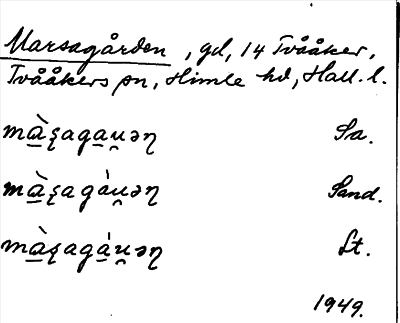 Marsagården, gd, 14 Tvååker,
Tvååkers sn, Himle hd, Hall. l.
mà̲ʂaga̲u̯əɳ Sa.
mà̲ʂagá̲u̯əɳ Sand.
mà̲ʂagá̲u̯əɳ Lt.
1949.